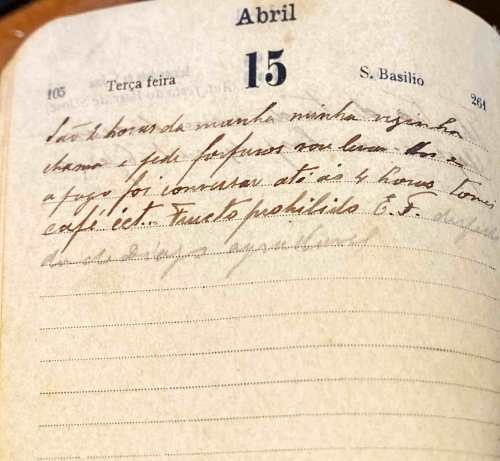 Abril
105 Terça feira 15 S. Basilio 261
São 2 horas da manhã minha visinha
chama e pede forfuros vou levar
o fogo foi conversar até ás 4 horas tomei
café ect. Fructo prohibido E. F.